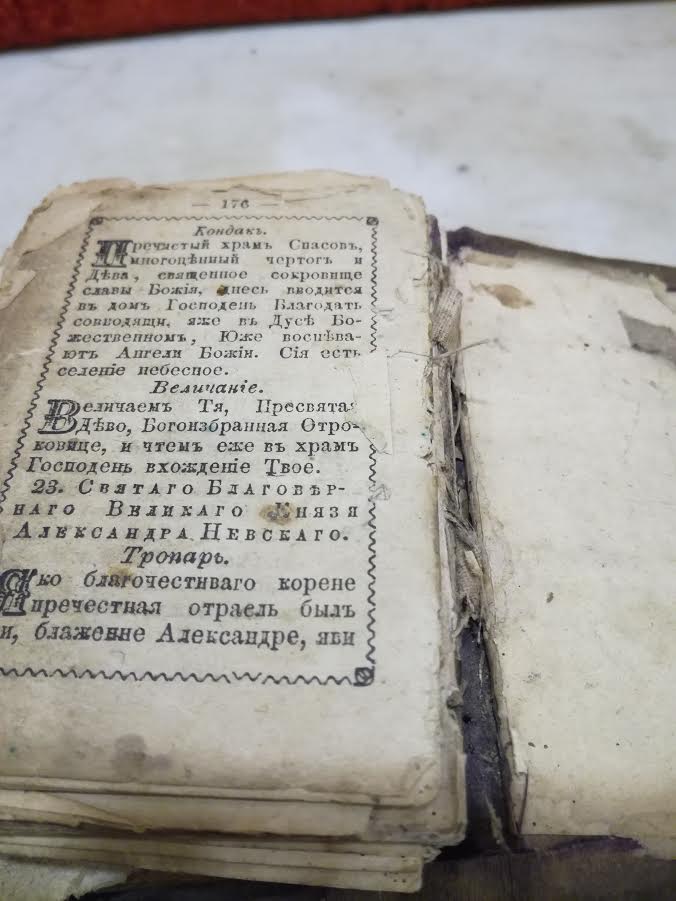 — 176 —
Кондакъ.
Пречистый храмъ Спасовъ,
многоцѣнный чертогъ и
Дѣва, священное сокровище
славы Божія, днесь вводится
въ домъ Господень Благодать
совводящи, яже въ Дусѣ Бо-
жественномъ, Юже воспѣва-
ютъ Ангели Божіи. Сія есть
селеніе небесное.
Величаніе.
Величаемъ Тя, Пресвятая
Дѣво, Богоизбранная Отро-
ковице, и чтемъ еже въ храмъ
Господень вхожденіе Твое.
23. Святаго Благовѣр-
наго Великаго Князя
Александра Невскаго.
Тропарь.
Яко благочестиваго корене
пречестная отрасль былъ
и, блаженне Александре, яви